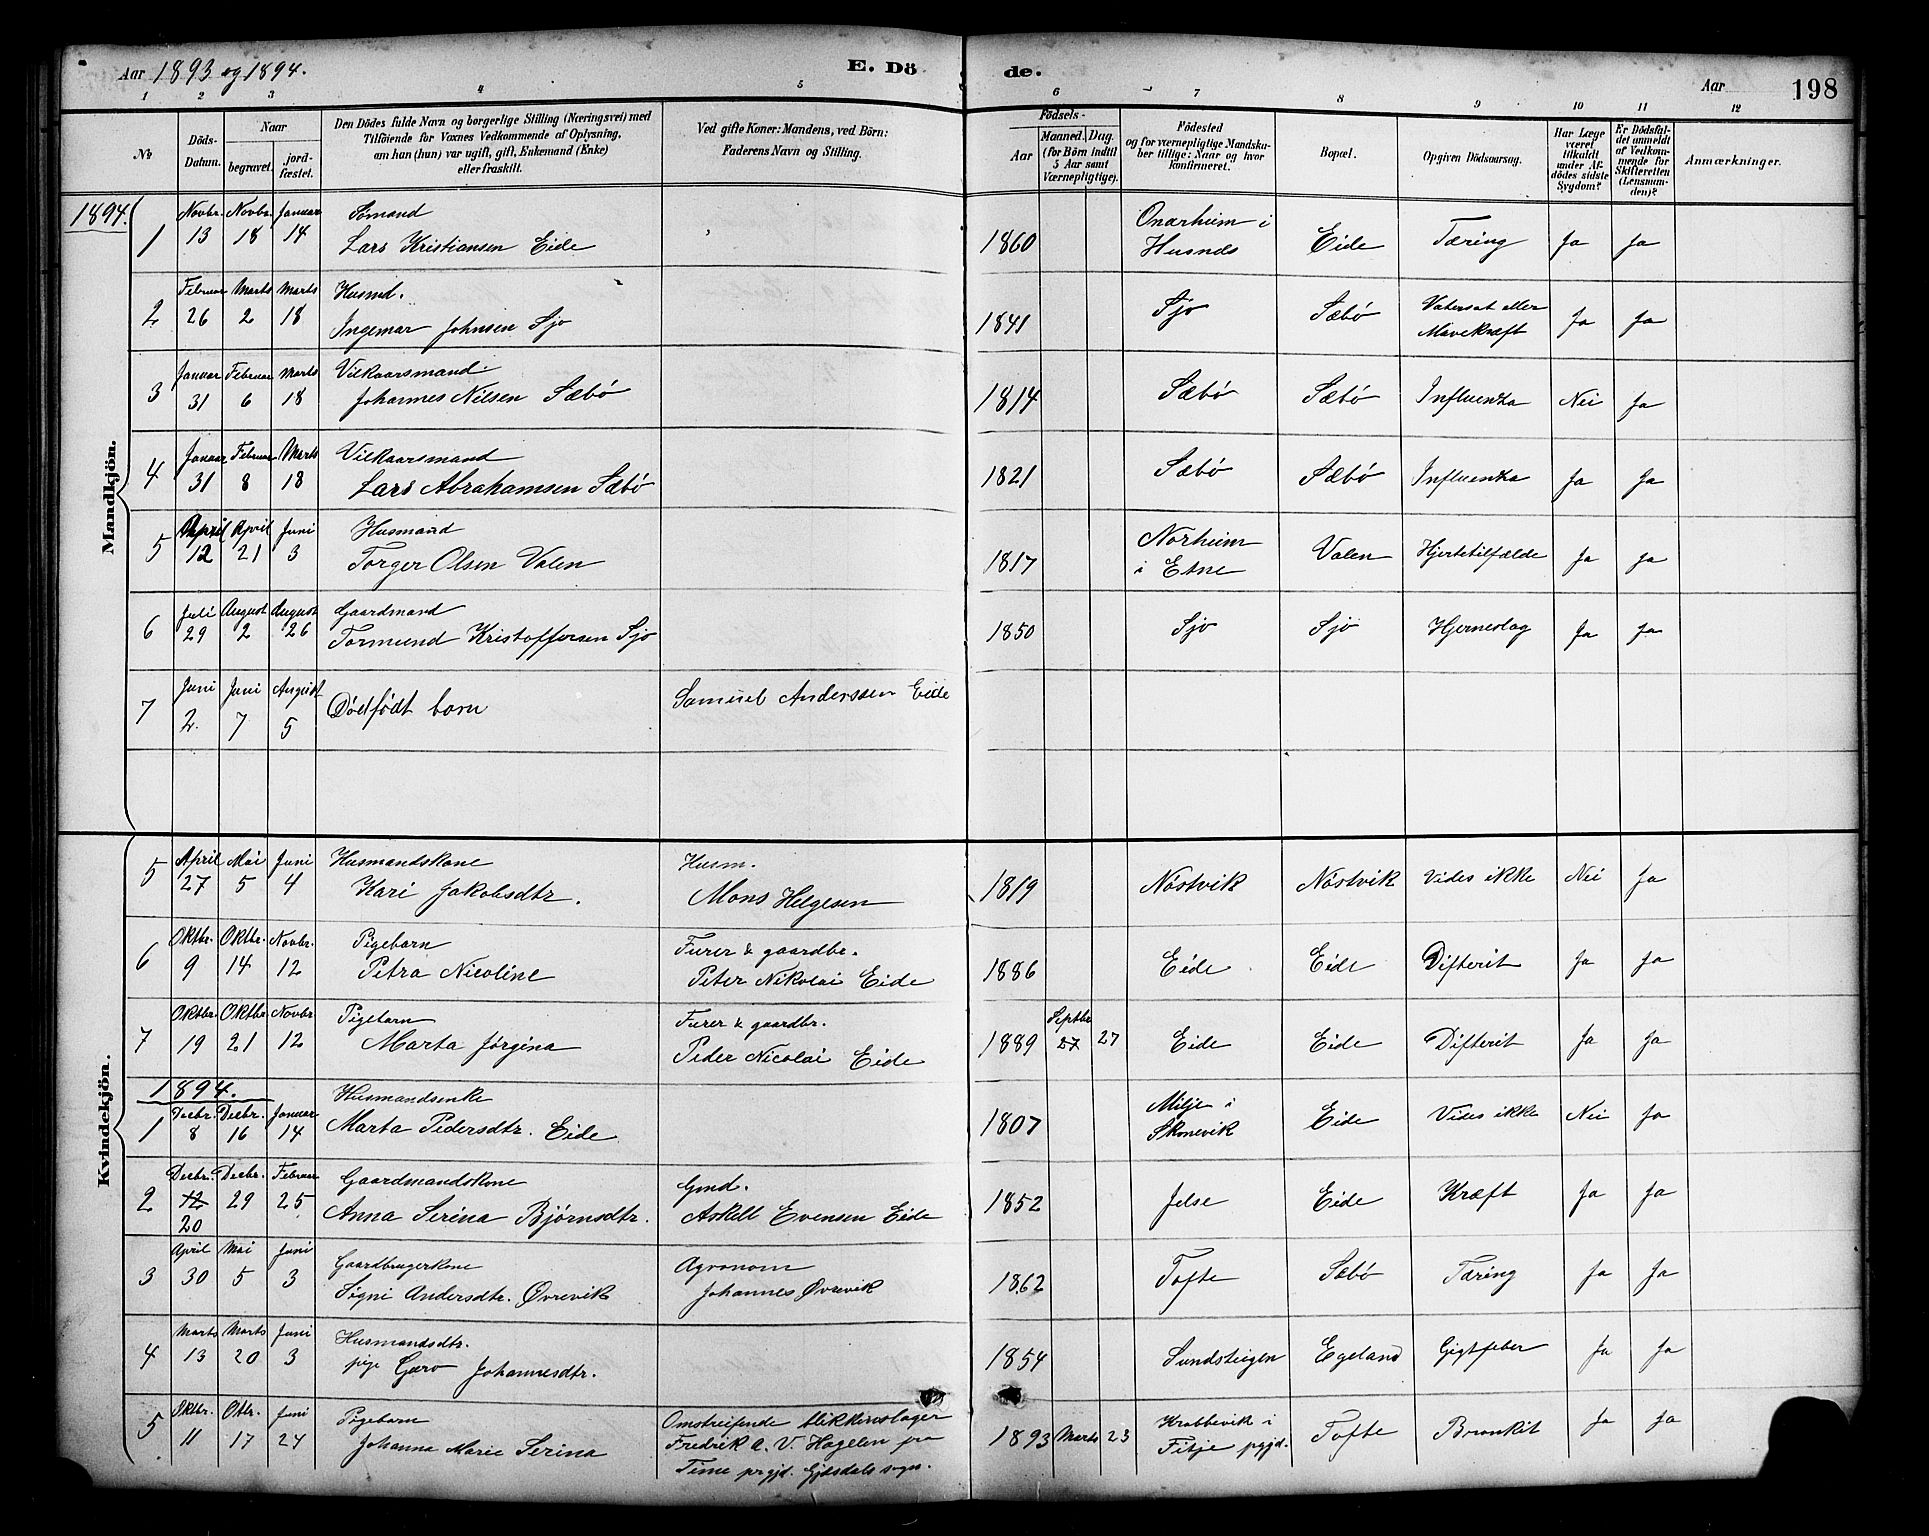 Aar 1893 og 1894.
E. Dö
de.
Aar
198
1 2 3 4 5 6 7 8 9 10 11 12
№
Döds-
Datum.
Naar
begravet.
jord-
fæstet.
Den Dödes fulde Navn og borgerlige Stilling (Næringsvei) med
Tilföiende for Voxnes Vedkommende af Oplysning,
om han (hun) var ugift, gift, Enkemand (Enke)
eller fraskilt.
Ved gifte Koner: Mandens, ved Börn:
Faderens Navn og Stilling.
Födsels-
Aar
Maaned. Dag.
(for Börn indtil
5 Aar samt
Værnepligtige).
Födested
og for værnepligtige Mandsku-
ber tillige: Naar og hvor
konfirmeret.
Bopæl.
Opgiven Dödsaarsag.
Har Læge
været
tilkaldt
under Af-
dödes sidste
Sygdom?
Er Dödsfal-
det anmeldt
af Vedkom-
mende for
Skifteretten
(Lensman-
den)?
Anmærkninger.
Mandkjön.
1894.
1 Novbr. 13 Novbr. 18 Januar 14 Sømand
Lars Kristiansen Eide 1860 Onarheim i
Husnes Eide Tæring Ja Ja
2 Februar 26 Marts 2 Marts 18 Husmd.
Ingemar Johnsen Sjo 1841 Sjo Sæbø Vatersot eller
Mavekræft Ja Ja
3 Januar 31 Februar 6 Marts 18 Vilkaarsmand
Johannes Nilsen Sæbø 1814 Sæbø Sæbø Influenza Nei Ja
4 Januar 31 Februar 8 Marts 18 Vilkaarsmand
Lars Abrahamsen Sæbø 1821 Sæbø Sæbø Influenza Ja Ja
5 April 12 April 21 Juni 3 Husmand
Torger Olsen Valen 1817 Norheim
i Etne Valen Hjertetilfælde Ja Ja
6 Juli 29 August 2 August 26 Gaardmand
Tormund Kristoffersen Sjo 1850 Sjo Sjo Hjerneslag Ja Ja
7 Juni 2. Juni 7 August 5 Dødfødt barn Samuel Anderssen Eide
Kvindekjön.
5 April 27 Mai 5 Juni 4 Husmandskone
Kari Jakobsdtr. Husm.
Mons Helgesen 1819 Nöstvik Nöstvik Vides ikke Nei Ja
6 Oktbr. 9 Oktbr. 14 Novbr. 12 Pigebarn
Petra Nicoline Furer & gaardbr.
Peter Nikolai Eide 1886 Eide Eide Difterit Ja Ja
7 Oktbr. 19 Oktbr. 21 Novbr. 12 Pigebarn
Marta Jørgina Furer & gaardbr.
Peder Nicolai Eide 1889 Septbr. 27 27 Eide Eide Difterit Ja Ja
1894.
1 Desbr. 8 Desbr. 16 Januar 14 Husmandsenke
Marta Pedersdtr. Eide 1807 Milje i
Skonevik Eide Vides ikke Nei Ja
2 Desbr. 12 20 Desbr. 29 Februar 25 Gaardmandskone
Anna Serina Bjørnsdtr. Gmd.
Askell Evensen Eide 1852 Jelse Eide Kræft Ja Ja
3 April 30 Mai 5 Juni 3 Gaardbrugerkone
Signi Andersdtr. Øvrevik Agronom
Johannes Øvrevik 1862 Tofte Sæbø Tæring Ja Ja
4 Marts 13 Marts 20 Juni 3 Husmandsdtr.
pige Gæro Johannesdtr. 1854 Sundsteigen Egeland Gigtfeber Ja Ja
5 Oktbr. 11 Otbr. 17 Juni 24 Pigebarn
Johanna Marie Serina Omstreifende blikkenslager
Fredrik A. V. Hagelen fra
Time prgjd. Gjesdals sogn. 1893 Marts 23 Krabbevik i
Fitje pgjd. Tofte Bronkit Ja Ja